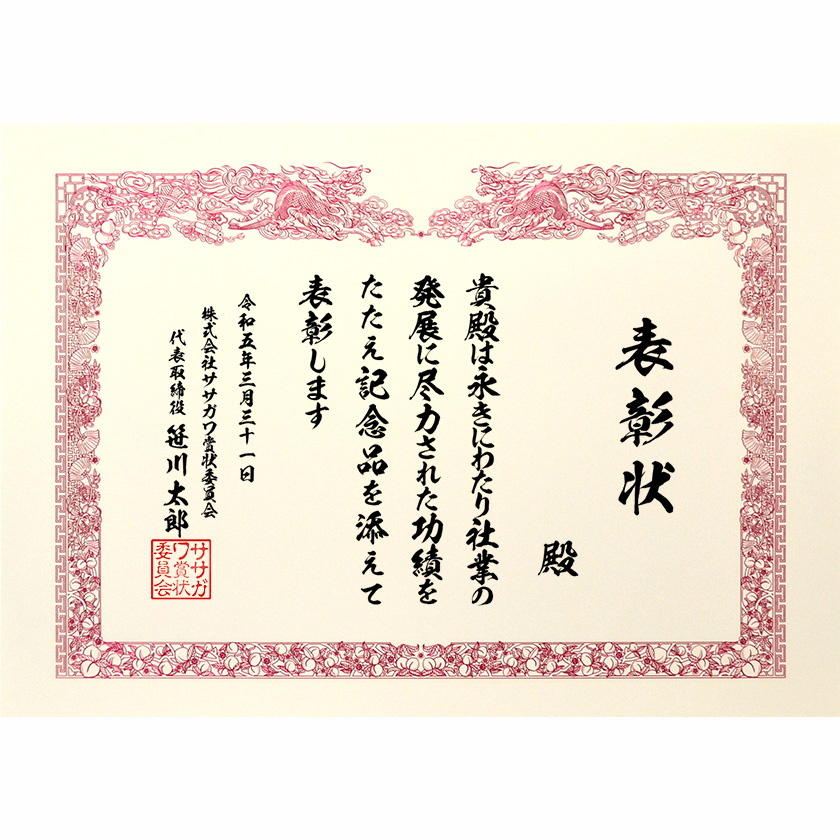 表彰状
殿
貴殿は永きにわたり社業の
発展に尽力された功績を
たたえ記念品を添えて
表彰します
令和五年三月三十一日
株式会社ササガワ賞状委員会
代表取締役 笹川太郎
ササガ
ワ賞状
委員会